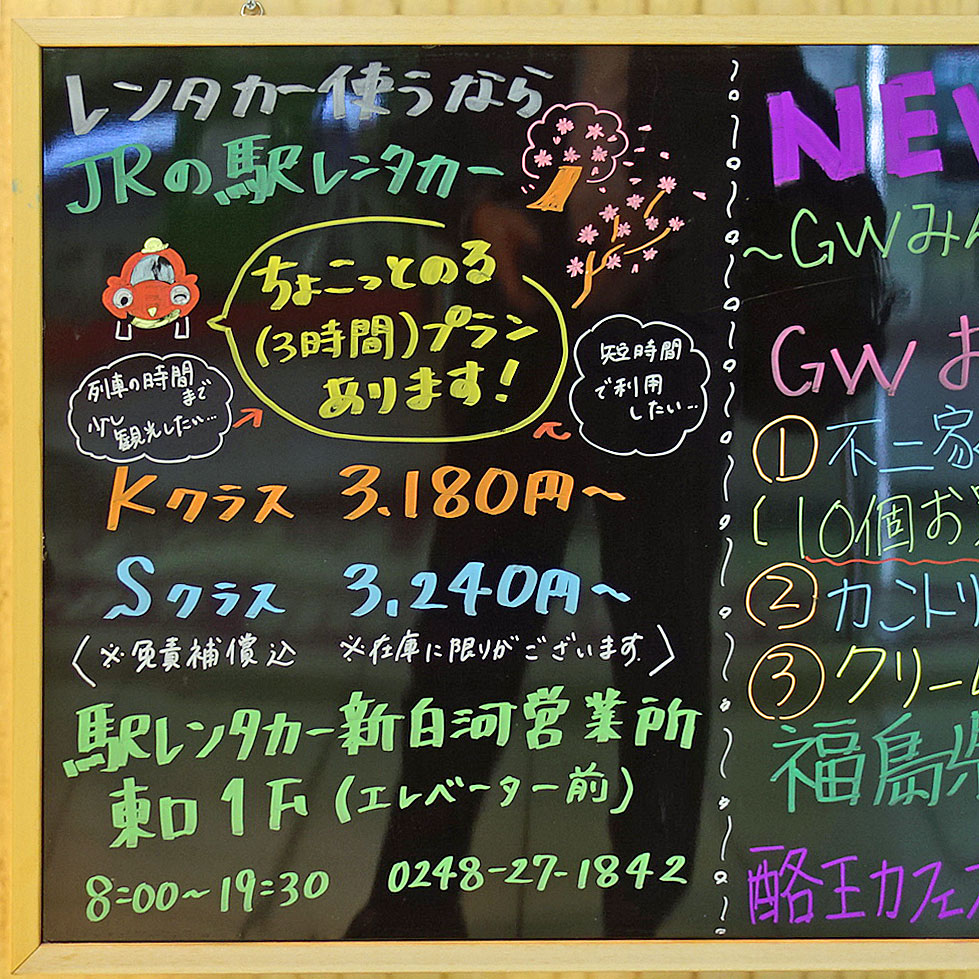 レンタカー使うなら
JRの駅レンタカー
ちょこっとのる
(3時間)プラン
あります!
列車の時間
まで
少し
観光したい…
短時間
で利用
したい…
Kクラス 3.180円～
Sクラス 3,240円～
〈※免責補償込 ※在庫に限りがございます。〉
駅レンタカー新白河営業所
東口1F(エレベーター前)
8:00～19:30 0248-27-1842
NEW
～GWみん
GWお
① 不二家
(10個お買
② カントリ
③ クリーム
福島県
酪王カフェオ